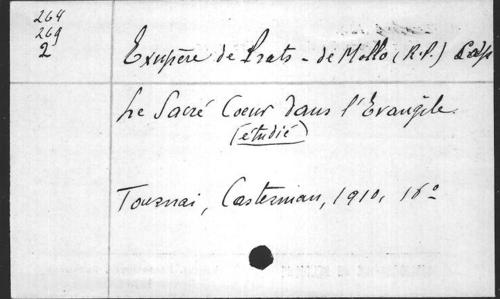 264
269
2
Exupère de Prats-de Mollo (R.P.) Cap.
Le Sacré Coeur dans l'Evangile.
(étudié)
Tournai, Casterman, 1910, 16º